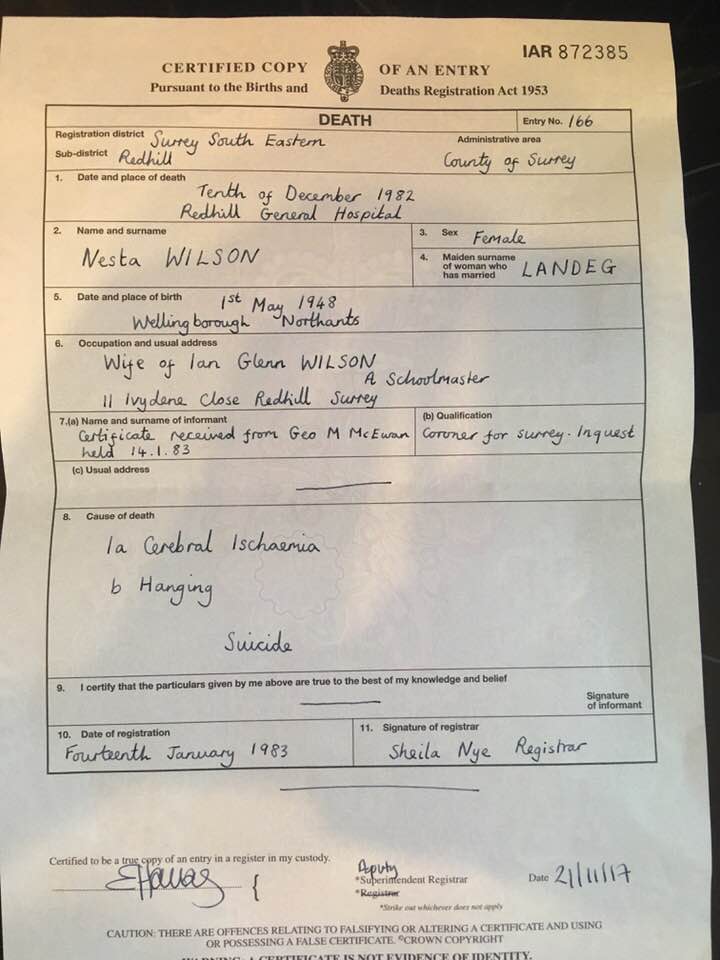 IAR 872385
CERTIFIED COPY OF AN ENTRY
Pursuant to the Births and Deaths Registration Act 1953
DEATH
Entry No. 166
Registration district Surrey South Eastern
Administrative area
Sub-district Redhill
County of Surrey
1. Date and place of death
Tenth of December 1982
Redhill General Hospital
2. Name and surname
Nesta WILSON
3. Sex Female
4. Maiden surname
of woman who
has married
LANDEG
5. Date and place of birth
1st May 1948
Wellingborough Northants
6. Occupation and usual address
Wife of Ian Glenn WILSON
A Schoolmaster
11 Ivydene Close Redhill Surrey
7.(a) Name and surname of informant
Certificate received from Geo M McEwan
held 14.1.83
(b) Qualification
Coroner for Surrey. Inquest
(c) Usual address
8. Cause of death
1a Cerebral Ischaemia
b Hanging
Suicide
9. I certify that the particulars given by me above are true to the best of my knowledge and belief
Signature
of informant
10. Date of registration
Fourteenth January 1983
11. Signature of registrar
Sheila Nye Registrar
Certified to be a true copy of an entry in a register in my custody.
{
Deputy
*Superintendent Registrar
*Registrar
*Strike out whichever does not apply
Date 21/11/17
CAUTION: THERE ARE OFFENCES RELATING TO FALSIFYING OR ALTERING A CERTIFICATE AND USING
OR POSSESSING A FALSE CERTIFICATE. ©CROWN COPYRIGHT
WARNING: A CERTIFICATE IS NOT EVIDENCE OF IDENTITY.